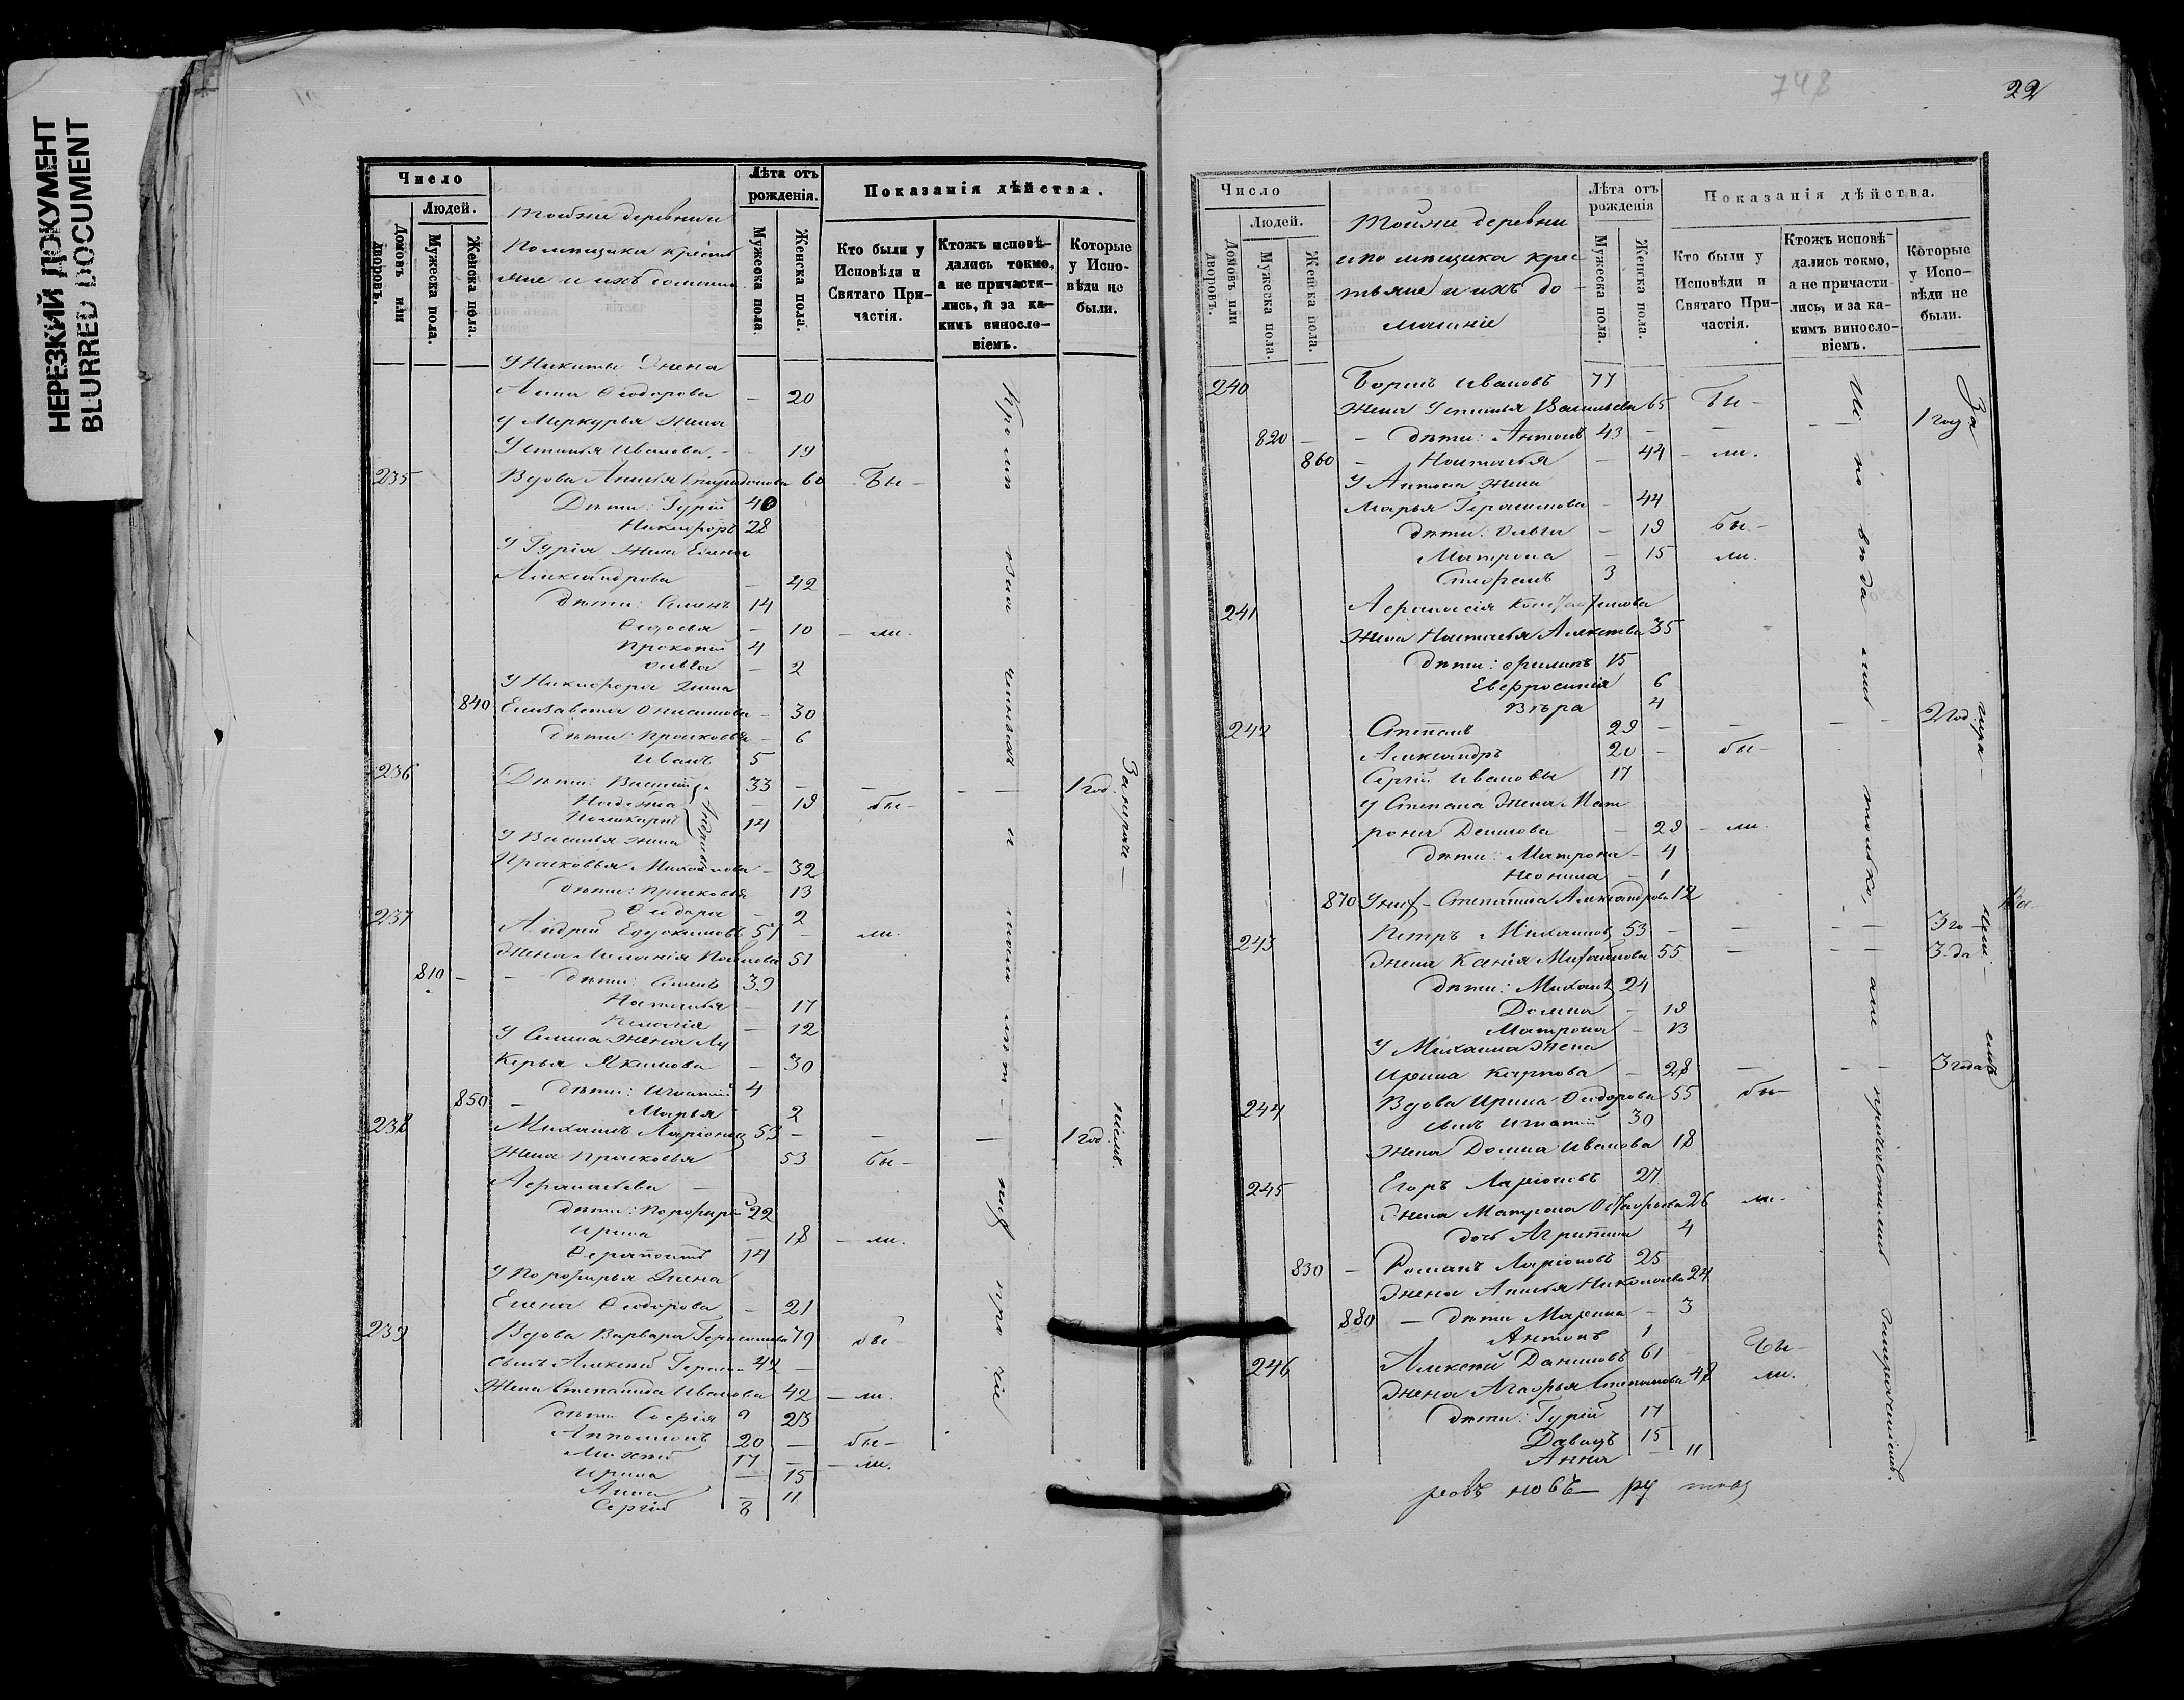 НЕРЕЗКИЙ ДОКУМЕНТ
BLURRED DOCUMENT
Число
Людей.
Домовъ или дворовъ.
Мужеска пола.
Женска пола.
Тойже деревни и
Помѣщика кресть
яне и ихъ домашн
Лѣта отъ рожденія.
Мужеска пола.
Женска пола.
Показанія дѣйства.
Кто были у Исповѣди и Святаго Причастія.
Ктожъ исповѣдались токмо, а не причастились, и за какимъ винословіемъ.
Которые у Исповѣди не были.
У Никиты Жена
Анна Ѳеодорова – 20
У Меркурья Жена
Устинья Иванова – 19
235 Вдова Анисья Спиридонова 60 Бы-
Дѣти: Гурій 40
Никифоръ 28
У Гурія Жена Елена
Александрова – 42
Дѣти: Семенъ 14
Ѳедосья – 10 – ли.
Прокопій 4
Ольга – 2
У Никифора Жена
840 Елизавета Онисимова – 30
Дѣти: Прасковья – 6
Иванъ 5
236 Дѣти: Василій 33 – – – 1 год.
Надежда – 19 бы-
Поликарпъ 14
У Василья жена
Прасковья Михайлова – 32
Дѣти: Прасковья 13
Ѳедора – 2
237 Андрей Евдокимовъ 57 – ли.
Жена Меланія Павлова 51
810 – – Дѣти: Семенъ 39
Наталья – 17
Пелагія – 12
У Семена Жена Лу
керья Якимова – 30
Дѣти: Игнатій 4
850 – Марья 2
238 Михаилъ Ларіоновъ 53 – – – 1 год.
Жена Прасковья 53 бы-
Аѳанасьева –
Дѣти: Порфирій 22
Ирина – 18 – ли.
Ѳерапонтъ 14
У Порфирья Жена
Елена Ѳеодорова – 21
239 Вдова Варвара Герасимова 79 бы-
сынъ Алексѣй Герас- 42 –
Жена Степанида Иванова 42 – ли.
дѣти Софія 23
Апполонъ 20 – бы-
17 – – ли.
Ирина – 15
Анна – 11
Сергій 8
748
22
Число
Людей.
Домовъ или дворовъ.
Мужеска пола.
Женска пола.
Тойже деревни
и помѣщика крес
тьяне и ихъ до
машніе
Лѣта отъ рожденія
Мужеска пола.
Женска пола.
Показанія дѣйства.
Кто были у Исповѣди и Святаго Причастія.
Ктожъ исповѣдались токмо, а не причастились, и за какимъ винословіемъ.
Которые у Исповѣди не были.
240 Борисъ Ивановъ 77
Жена Устинья Васильева 65 Бы-
820 – – дѣти: Антонъ 43 – – – – 1 году
860 – Наталья – 44 – ли.
У Антона Жена
Марья Герасимова – 44
дѣти: Ольга – 19 бы-
Матрона – 15 ли.
Стефанъ 3
241 Аѳанасія
Жена Наталья Алексѣева 35
дѣти: Филипъ 15
Евфросинія 6
Вѣра 4
242 Степанъ 29 – – – – 2 год.
Александръ 20 – бы-
Сергій Ивановы 17
У Степана Жена Мат
рона Денисова – 29 – ли.
дѣти: Матрона – 4
Неонила – 1
870 Степанида Александрова 12
243 Петръ Михаиловъ 53 – – – – 3 го-
Жена Ксенія Михайлова 55 – – – 3 да
дѣти: Михаилъ 24
Домна – 19
Матрона – 13
У Михаила Жена
Ирина Карпова – 28 – – – 3 года
244 Вдова Ирина Ѳеодорова 55 бы-
сынъ Игнатій 30
Жена Домна Иванова 18
245 Егоръ Ларіоновъ 27
Жена Матрона 26 ли.
дочь Агрипина 4
830 – Романъ Ларіоновъ 25
Жена Анисья Николаева 24
880 – дѣти Марина – 3
Антонъ 1
246 Алексѣй Даниловъ 61 Бы-
Жена Агафья Степанова 48 ли.
дѣти: Гурій 17
Давидъ 15
Анна – 11